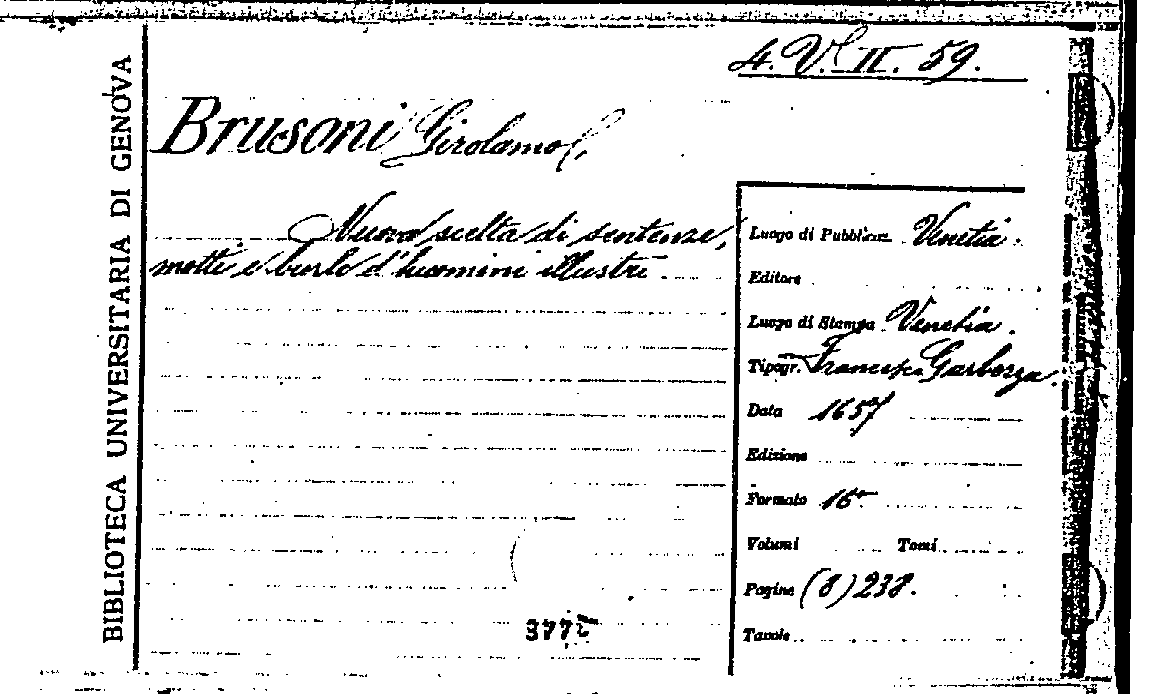 BIBLIOTECA UNIVERSITARIA DI GENOVA
4. V. II. 59.
Brusoni Girolamo
Nuova scelta di sentenze,
motti e burle d'huomini illustri
Luogo di Pubblicaz. Venetia.
Editore
Luogo di Stampa Venetia.
Tipogr. Francesco
Data 1657
Edizione
Formato 16°
Volumi Tomi
Pagine (8) 238.
Tavole